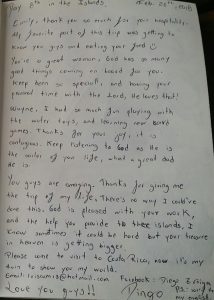 Day 8th in the Islands. Feb. 22th, 2018
Emily, thank you so much for your hospitality.
My favorite part of this trip was getting to
know you guys and eating your food
You're a great woman, God has so many
good things coming on board for you.
Keep been so special, and having your
personal time with the Lord, He loves that!
Wayne, I had so much fun playing with
the water toys, and learning new board
games. Thanks for your joy, it is
contagious. Keep listening to God as He is
the sailor of your life, what a great dad
He is.
You guys are amazing. Thanks for giving me
the trip of my life, There's no way I could've
done this. God is pleased with your work,
and the help you provide to these islands, I
know sometimes it could be hard but your treasure
in heaven is getting bigger.
Please come to visit to Costa Rica, now it's my
turn to show you my world.
Facebook: Diego
Love you guys!!